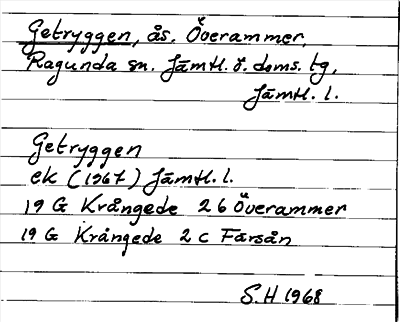 Getryggen, ås. Överammer,
Ragunda sn. Jämtl. ö. doms. tg,
Jämtl. l.
Getryggen
ek (1967) Jämtl. l.
19 G Krångede 26 Överammer
19 G Krångede 2c Färsån
S. H 1968